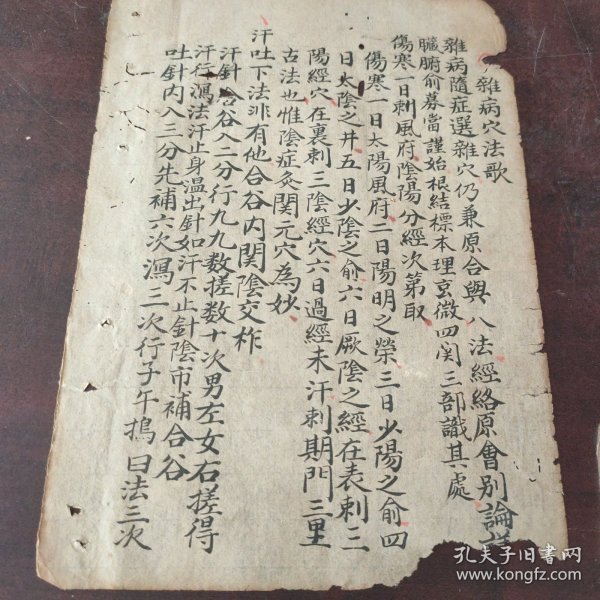 雜病穴法歌
雜病隨症選雜穴仍兼原合與八法經絡原會別論詳
臟腑俞募當謹始根結標本理玄微四関三部識其處
傷寒一日刺風府陰陽分經次第取
傷寒一日太陽風府二日陽明之榮三日少陽之俞四
日太陰之井五日少陰之俞六日厥陰之經在表刺三
陽經穴在裏刺三陰經穴六日過經未汗刺期門三里
古法也惟陰症灸関元穴為妙
汗吐下法非有他合谷内関陰交杵
汗針合谷入二分行九九数搓数十次男左女右搓得
汗行瀉法汗止身温出針如汗不止針陰市補合谷
吐針内入三分先補六次瀉三次行子午搗臼法三次
孔夫子旧书网
www.kongfz.com